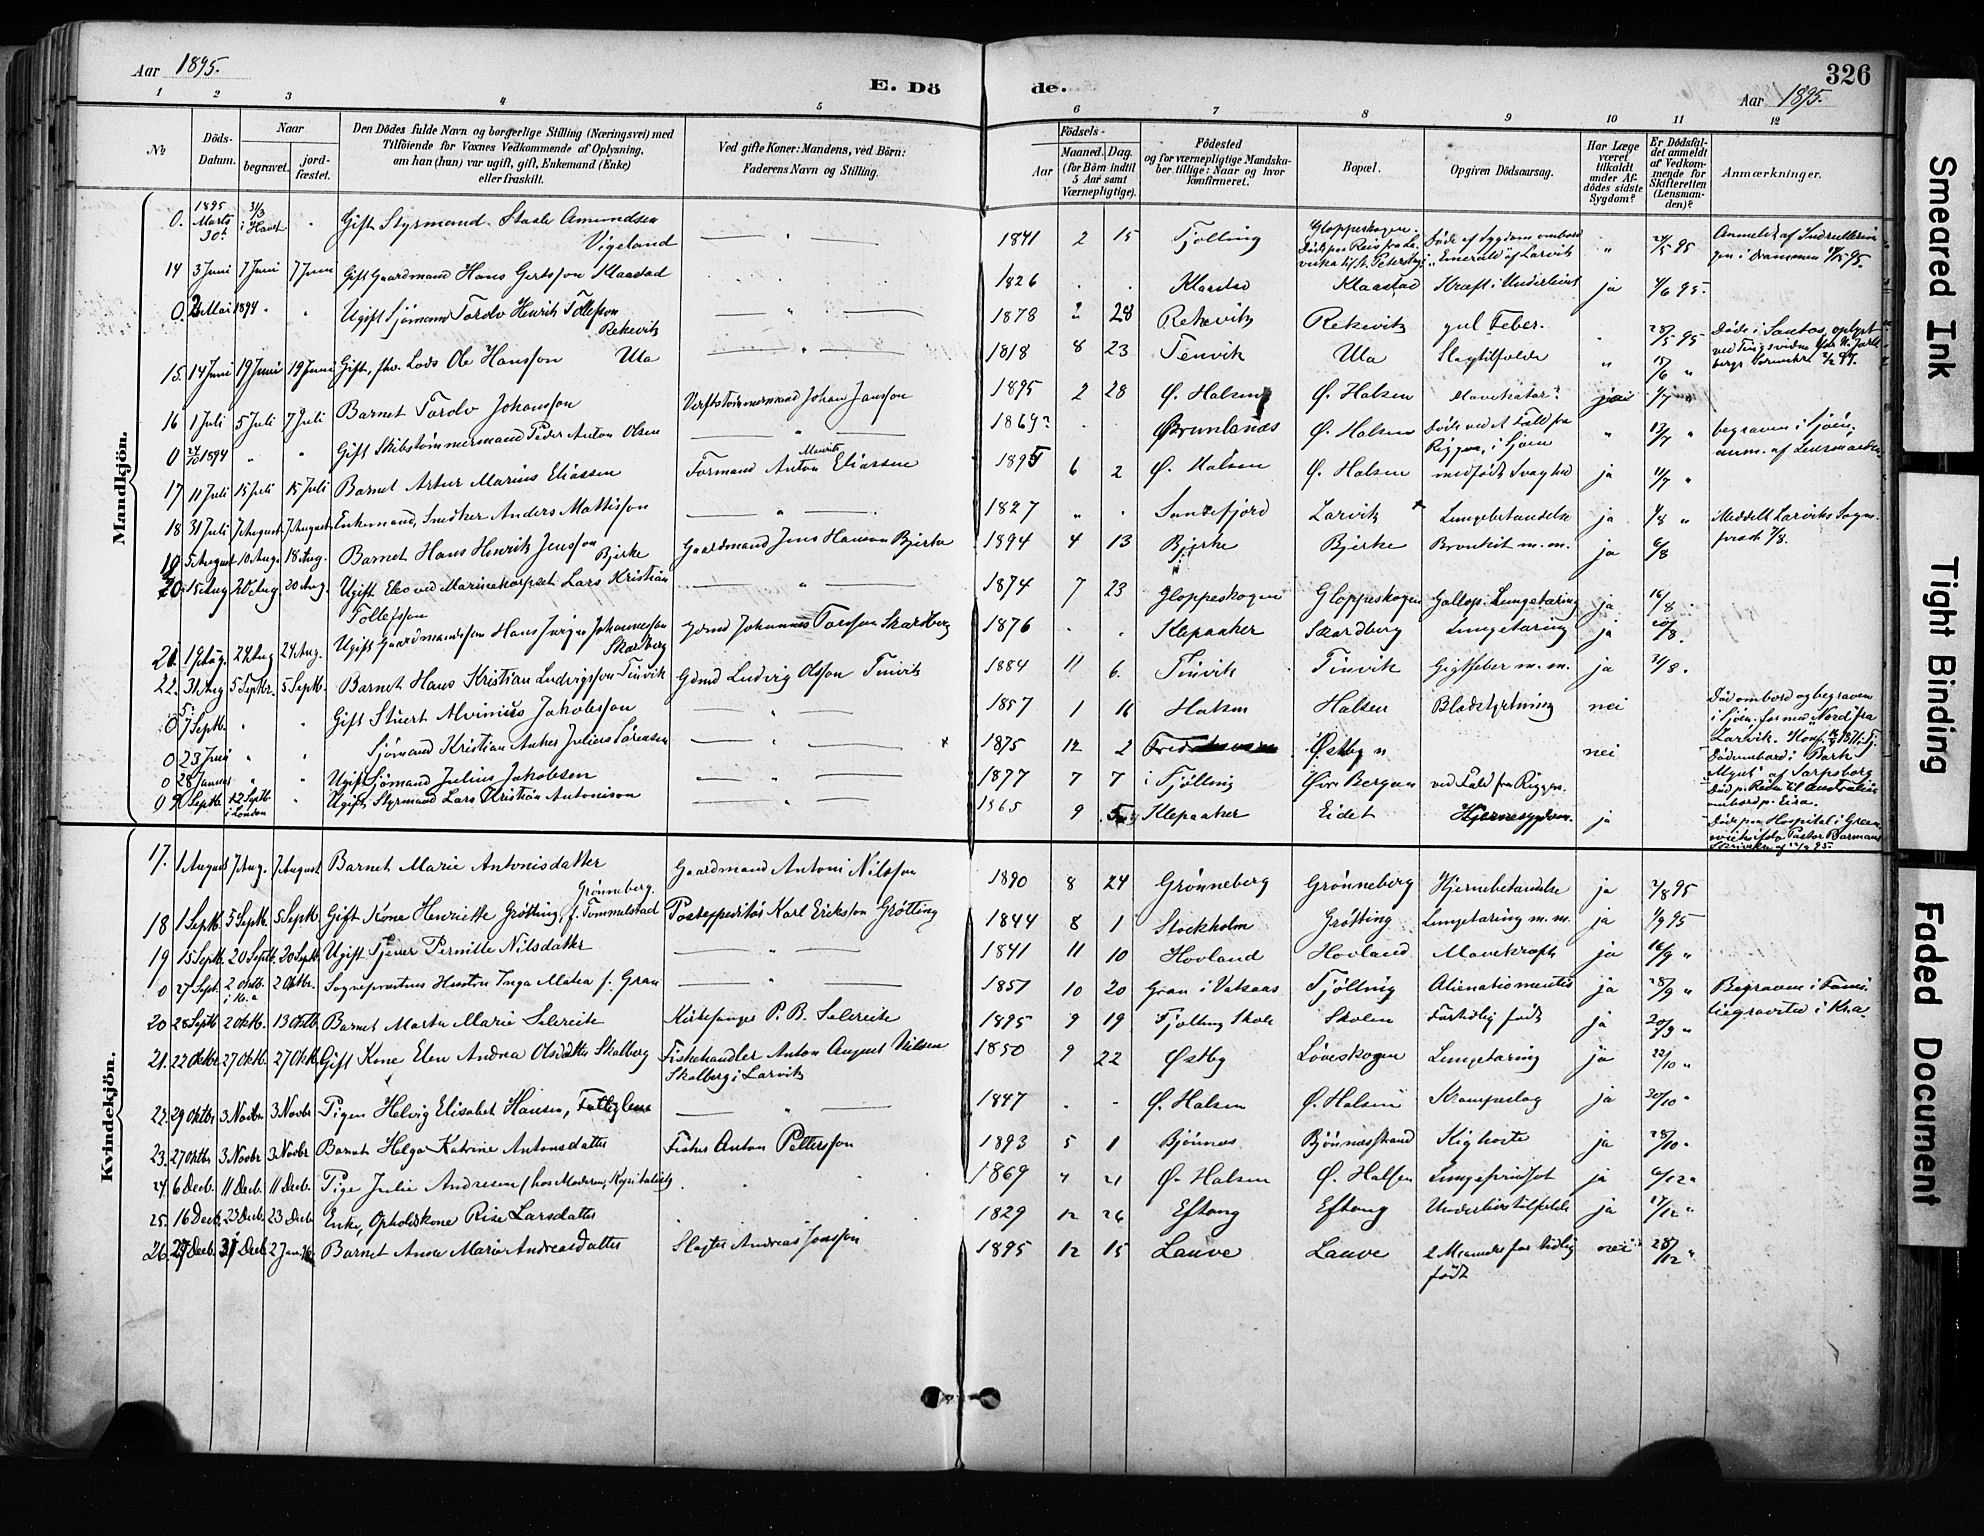 Aar 1895.
E. Dö
de.
326
Aar 1895.
1 2 3 4 5 6 7 8 9 10 11 12
№
Döds-Datum.
Naar
begravet.
jord-fæstet.
Den Dödes fulde Navn og borgerlige Stilling (Næringsvei) med
Tilföiende for Voxnes Vedkommende af Oplysning,
om han (hun) var ugift, gift, Enkemand (Enke)
eller fraskilt.
Ved gifte Koner: Mandens, ved Börn:
Faderens Navn og Stilling.
Födsels-
Aar
Maaned. Dag.
(for Börn indtil
5 Aar samt
Værnepligtige).
Födested
og for værnepligtige Mandska-
ber tillige: Naar og hvor
konfirmeret.
Bopæl.
Opgiven Dödsaarsag.
Har Læge
været
tilkaldt
under Af-
dödes sidste
Sygdom?
Er Dödsfal-
det anmeldt
af Vedkom-
mende for
Skifteretten
(Lensman-
den)?
Anmærkninger.
Mandkjön.
0. 1895 Marts 30te 31/3 i Havet " Gift Styrmand Staale Amundsen Vigeland " 1841 2 15 Tjølling Gloppeskogen. Døde af Sygdom ombord i "Emerald" af Larvik " 95
14 3 Juni 7 Juni 7 Juni Gift Gaardmand Hans Gertsson Klaastad 1826 Klaastad Klaastad Kræft i Underlivet ja 4/6 95.
0. Mai 1894 " " Ugift Sjømand Tordv Henrik Tollefson Rekevik " 1878 28 Rekevik Rekevik gul Feber. 28/5 95 Døde i Santos, oplyst
15. 14 Juni 19 Juni 19 Juni Gift, fhv. Lods Ole Hansson Ula " 1818 8 23 Tenvik Ula Slagtilfælde " 15/6 "
16 1 Juli 5 Juli 7 Juli Barnet Tordv Johansson Verftstømmermand Johan Jansson 1895 2 28 Ø. Halsen Ø. Halsen Mavekatar? 4/7 "
0 1894 " " Gift Skibstømmermand Peder Anton Olsen " 1869? Brunlanæs Ø. Halsen Døde ved et Fald fra Riggen, i Sjøen " 13/7 " begraven i Sjøen, anm. af Lensmanden
17 11 Juli 15 Juli 15 Juli Barnet Artur Marius Eliassen Formand Anton Mourits Eliassen 1895 6 2 Ø. Halsen Ø. Halsen medfødt Svaghed ja 11/7 "
18 31 Juli 7 August 7 August Enkemand, Snedker Anders Mattisson " 1827 " Sandefjord Larvik Lungebetændelse ja 1/8 " Meddelt Larviks Sogneprest 7/8.
19 5 August 10 Aug. 18 Aug. Barnet Hans Henrik Jensson Bjerke Gaardmand Jens Hansson Bjerke 1894 4 13 Bjerke Bjerke Bronkit m.m. ja 6/8
20. 15 Aug 20 Aug 20 Aug. Ugift Elev ved Marinekorpset Lars Kristian Tollefsson " 1874 7 23 Gloppeskogen Gloppeskogen Gallop. Lungetæring ja 16/8
21. 19 Aug. 24 Aug 24 Aug. Ugift Gaardmandssøn Hans Jørgen Johannesson Skardberg Gdmd Johannes Torsson Skardberg 1876 Klepaaker Skardberg Lungetæring ja 20/8.
22. 31 Aug 5 Septbr. 5 Septb. Barnet Hans Kristian Ludvigsson Tinvik Gdmd Ludvig Olsson Tinvik 1884 11 6. Tinvik Tinvik Gigtfeber m.m. ja 2/8.
0 7 Septb. " " Gift Stuert Alvinius Jakobsson " 1857 1 16 Halsen Halsen Blodstyrtning nei Død ombord og begraven i Sjøen
0 23 Juni " " Sjømand Kristian Anker Julius Sørensen " 1875 12 2 Østbyn nei Død ombord i Bark
0 28 Januar " " Ugift Sjømand Julius Jakobsen " 1877 7 7 i Tjølling Øvre Bergan ved Fald fra Riggen. Død p. Reise til Australien
0 9 Septb. 12 Septb i London " Ugift Styrmand Lars Kristian Antonison " 1865 9 Klepaaker Eidet Hjernesygdom. ja Døde paa Hospital i
Kvindekjön.
17. 1 August 7 Aug. 7 August Barnet Marie Antonisdatter Grønneberg Gaardmand Antoni Nilsson 1890 8 24 Grønneberg Grønneberg Hjernebetændelse ja 2/8 95
18 1 Septb. 5 Septb. 5 Septb. Gift Kone Henriette Grøtting, f. Tommelstad Postexpeditør Karl Eriksson Grøtting 1844 8 1 Stockholm Grøtting Lungetæring m.m. ja 1/9 95
19 15 Septb. 20 Septb. 20 Septb. Ugift Tjener Pernille Nilsdatter " 1841 11 10 Hovland Hovland Mavekræft ja 16/9 "
0 27 Sept. 2 Oktb. i Kr.a 2 Oktbr. Sogneprestens Hustru Inga Matea f. Gran " 1851 10 20 Gran i Vatsaas Tjølling Alienatio mentis ja 28/9 " Begraven i Familiegravsted i Kr.a.
20 28 Septb 2 Oktb. 13 Oktb. Barnet Marta Marie Selsreite Kirkesanger P. B. Selsreite 1895 9 19 Tjølling Skole Skolen Fortidlig født ja 20/9 "
21. 22 Oktbr 27 Oktb. 27 Oktb. Gift Kone Elen Andrea Olsdatter Skalberg Fiskehandler Anton August Nilsen Skalberg i Larvik 1850 9 22 Østby Løveskogen Lungetæring ja 22/10 "
22. 29 Oktbr 3 Novbr 3 Novbr Pigen Helvig Elisabet Hansen, Fattiglem " 1847 Ø. Halsen Ø. Halsen Krampeslag ja 30/10 "
23. 27 Oktbr 3 Novbr 3 Novbr Barnet Helga Katrine Antonsdatter Fisker Anton Pettersson 1893 5 1 Bjønnæs Bjønnæsstrand Kighoste ja 28/10 "
24. 6 Decb. 11 Decb. 11 Decb. Pige Julie Andresen (hos Moderen, Kapitalist) 1869 21 Ø. Halsen Ø. Halsen ja 6/12 "
25. 16 Decb. 23 Decb. 23 Decb Enke, Opholdskone Rise Larsdatter 1829 12 26 Eftang Eftang Underlivstilfælde ja 17/12 "
26. 27 Decb. 31 Decb. 2 Jan. Barnet Anna Marie Andreasdatter Slagter Andreas Jonsson 1895 12 15 Lauve Lauve 2 Maaneder for tidlig født nei 28/12 "
Smeared Ink
Tight Binding
Faded Document